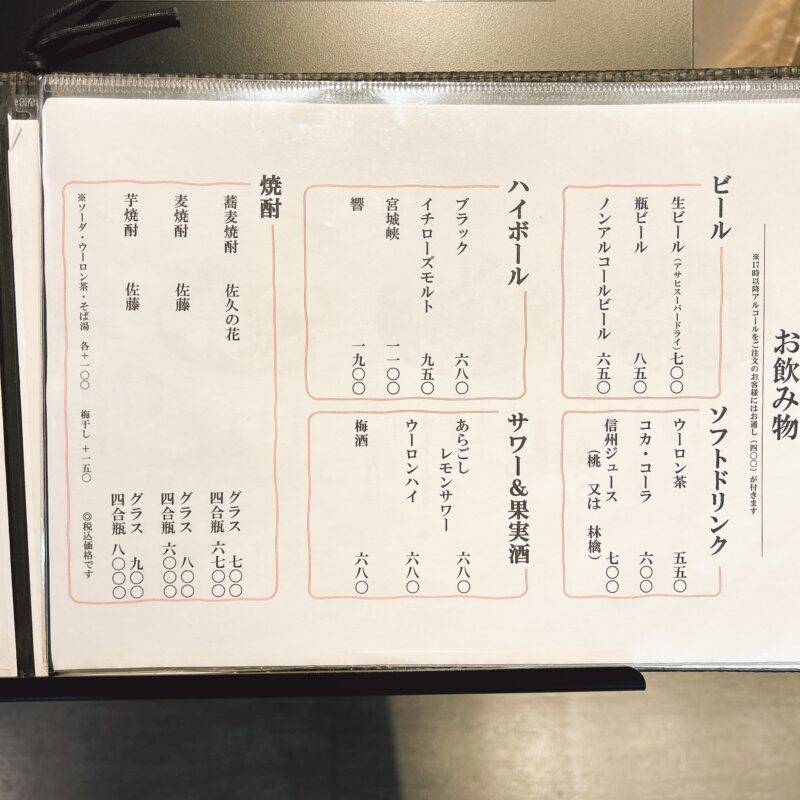 お飲み物
※17時以降アルコールをご注文のお客様にはお通し(四〇〇)が付きます
ビール
生ビール(アサヒスーパードライ)七〇〇
瓶ビール 八五〇
ノンアルコールビール 六五〇
ソフトドリンク
ウーロン茶 五五〇
コカ・コーラ 六〇〇
信州ジュース 七〇〇
(桃 又は 林檎)
ハイボール
ブラック 六八〇
イチローズモルト 九五〇
宮城峡 一一〇〇
響 一九〇〇
サワー&果実酒
あらごし
レモンサワー 六八〇
ウーロンハイ 六八〇
梅酒 六八〇
焼酎
蕎麦焼酎 佐久の花 グラス 七〇〇
四合瓶 六七〇〇
麦焼酎 佐藤 グラス 八〇〇
四合瓶 六〇〇〇
芋焼酎 佐藤 グラス 九〇〇
四合瓶 八〇〇〇
※ソーダ・ウーロン茶・そば湯 各+一〇〇 梅干し +一五〇 ◎税込価格です